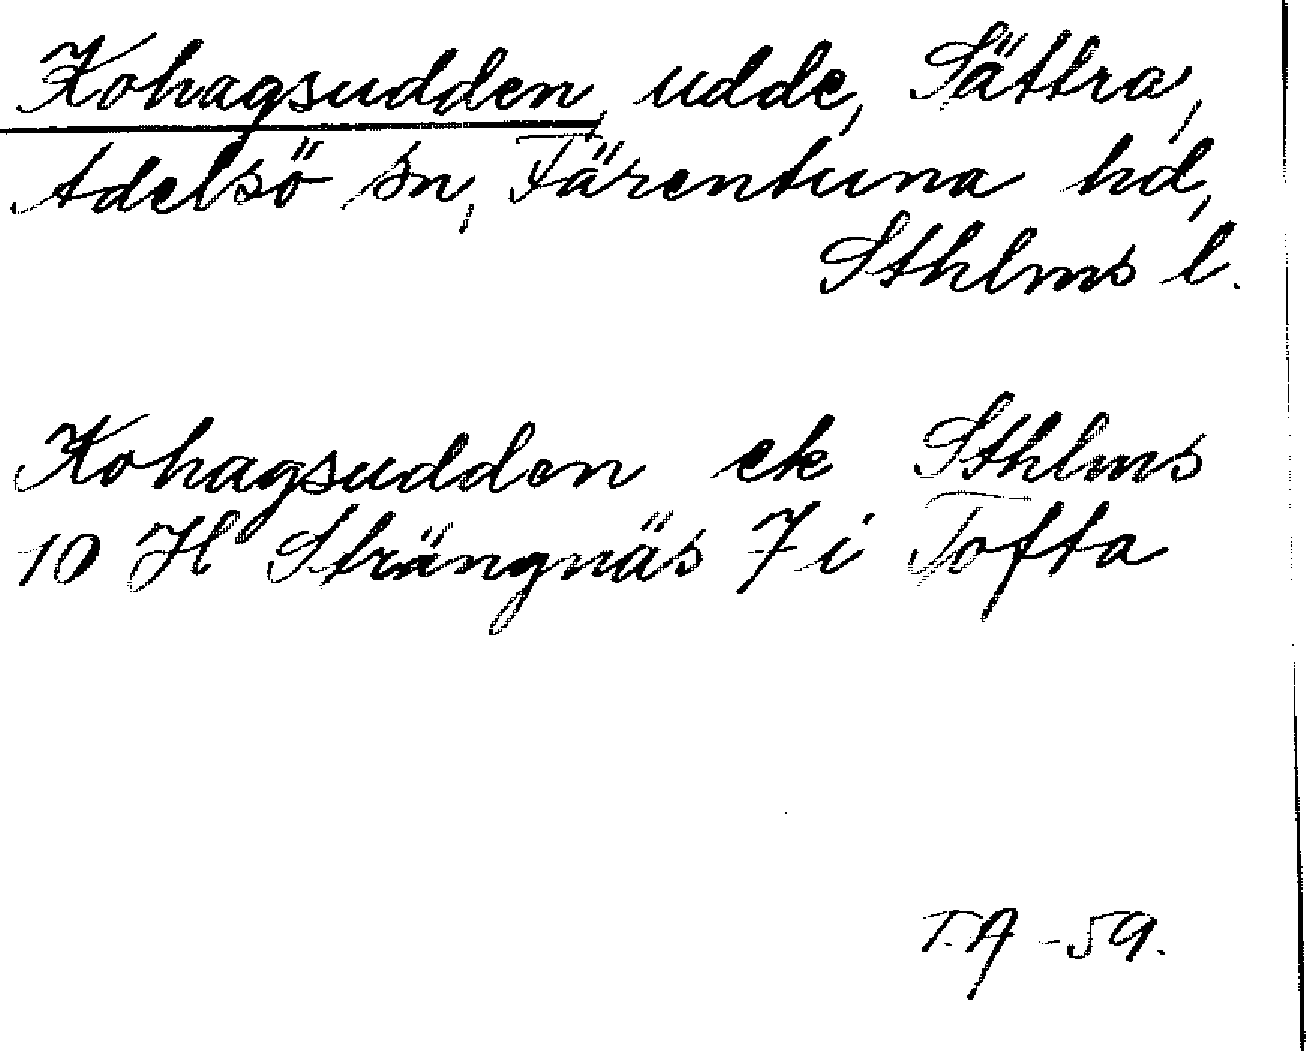 Kohagsudden, udde, Sättra,
Adelsö sn, Färentuna hd,
Sthlms l.
Kohagsudden ek Sthlms
10 H Strängnäs 7 i Tofta
T.A -59.